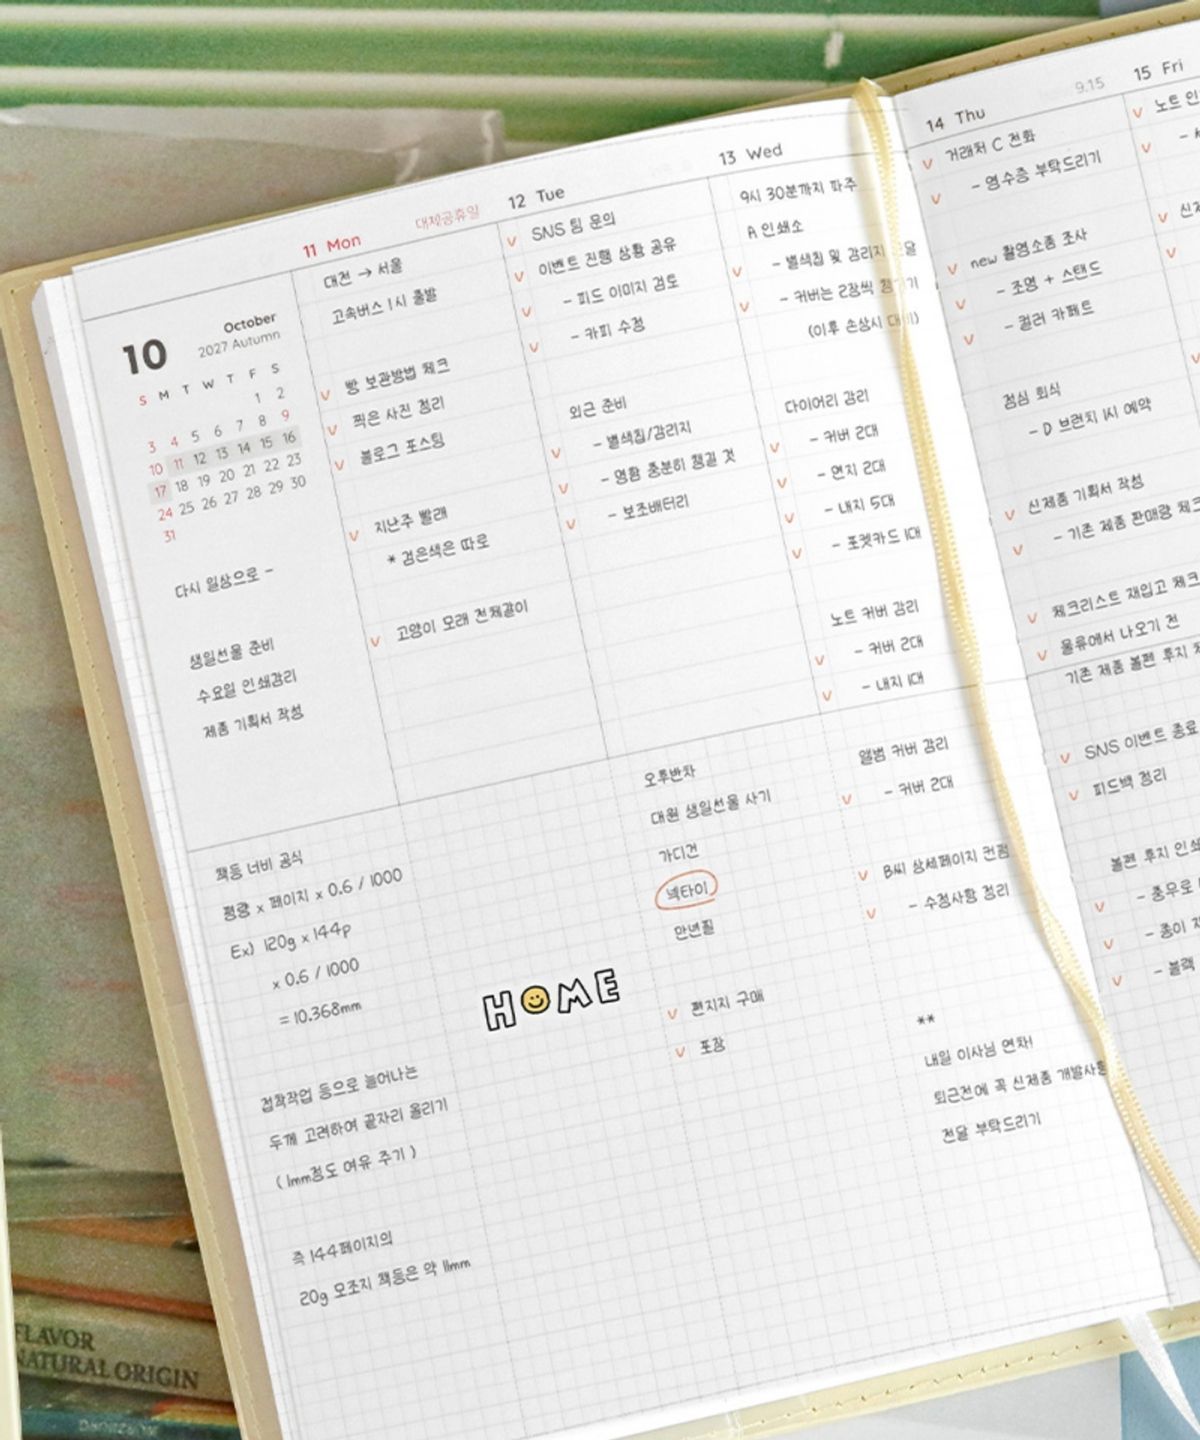 10
October
2027 Autumn
S M T W T F S
1 2
3 4 5 6 7 8 9
10 11 12 13 14 15 16
17 18 19 20 21 22 23
24 25 26 27 28 29 30
31
다시 일상으로 -
생일선물 준비
수요일 인쇄감리
제품 기획서 작성
11 Mon
대체공휴일
대전 → 서울
고속버스 1시 출발
v 빵 보관방법 체크
v 찍은 사진 정리
v 블로그 포스팅
v 지난주 빨래
* 검은색은 따로
v 고양이 모래 전체갈이
12 Tue
v SNS 팀 문의
v 이벤트 진행 상황 공유
v - 피드 이미지 검토
v - 카피 수정
외근 준비
v - 별색칩/감리지
v - 명함 충분히 챙길 것
v - 보조배터리
13 Wed
9시 30분까지 파주
A 인쇄소
v - 별색칩 및 감리지
v - 커버는 2장씩
(이후 손상시
다이어리 감리
v - 커버 2대
v - 면지 2대
v - 내지 5대
v - 포켓카드 1대
노트 커버 감리
v - 커버 2대
v - 내지 1대
앨범 커버 감리
v - 커버 2대
v B씨 상세페이지 컨펌
v - 수정사항 정리
**
내일 이사님 연차!
퇴근전에 꼭 신제품 개발사항
전달 부탁드리기
책등 너비 공식
평량 x 페이지 x 0.6 / 1000
Ex) 120g x 144p
x 0.6 / 1000
= 10.368mm
접착작업 등으로 늘어나는
두께 고려하여 끝자리 올리기
( 1mm정도 여유 주기 )
즉 144페이지의
20g 모조지 책등은 약 11mm
HOME
오후반차
대원 생일선물 사기
가디건
넥타이
만년필
v 편지지 구매
v 포장
14 Thu
9.15
v 거래처 C 전화
v - 영수증 부탁드리기
v new 촬영소품 조사
v - 조명 + 스탠드
v - 컬러 카페트
점심 회식
- D 브런치 1시 예약
v 신제품 기획서 작성
v - 기존 제품 판매량
v 체크리스트 재입고
v 물류에서 나오기 전
기존 제품 볼펜 후지
v SNS 이벤트 종료
v 피드백 정리
볼펜 후지
v - 충무로
v - 종이
v - 블랙
15 Fri
v 노트
v
v
v
v
FLAVOR
NATURAL ORIGIN